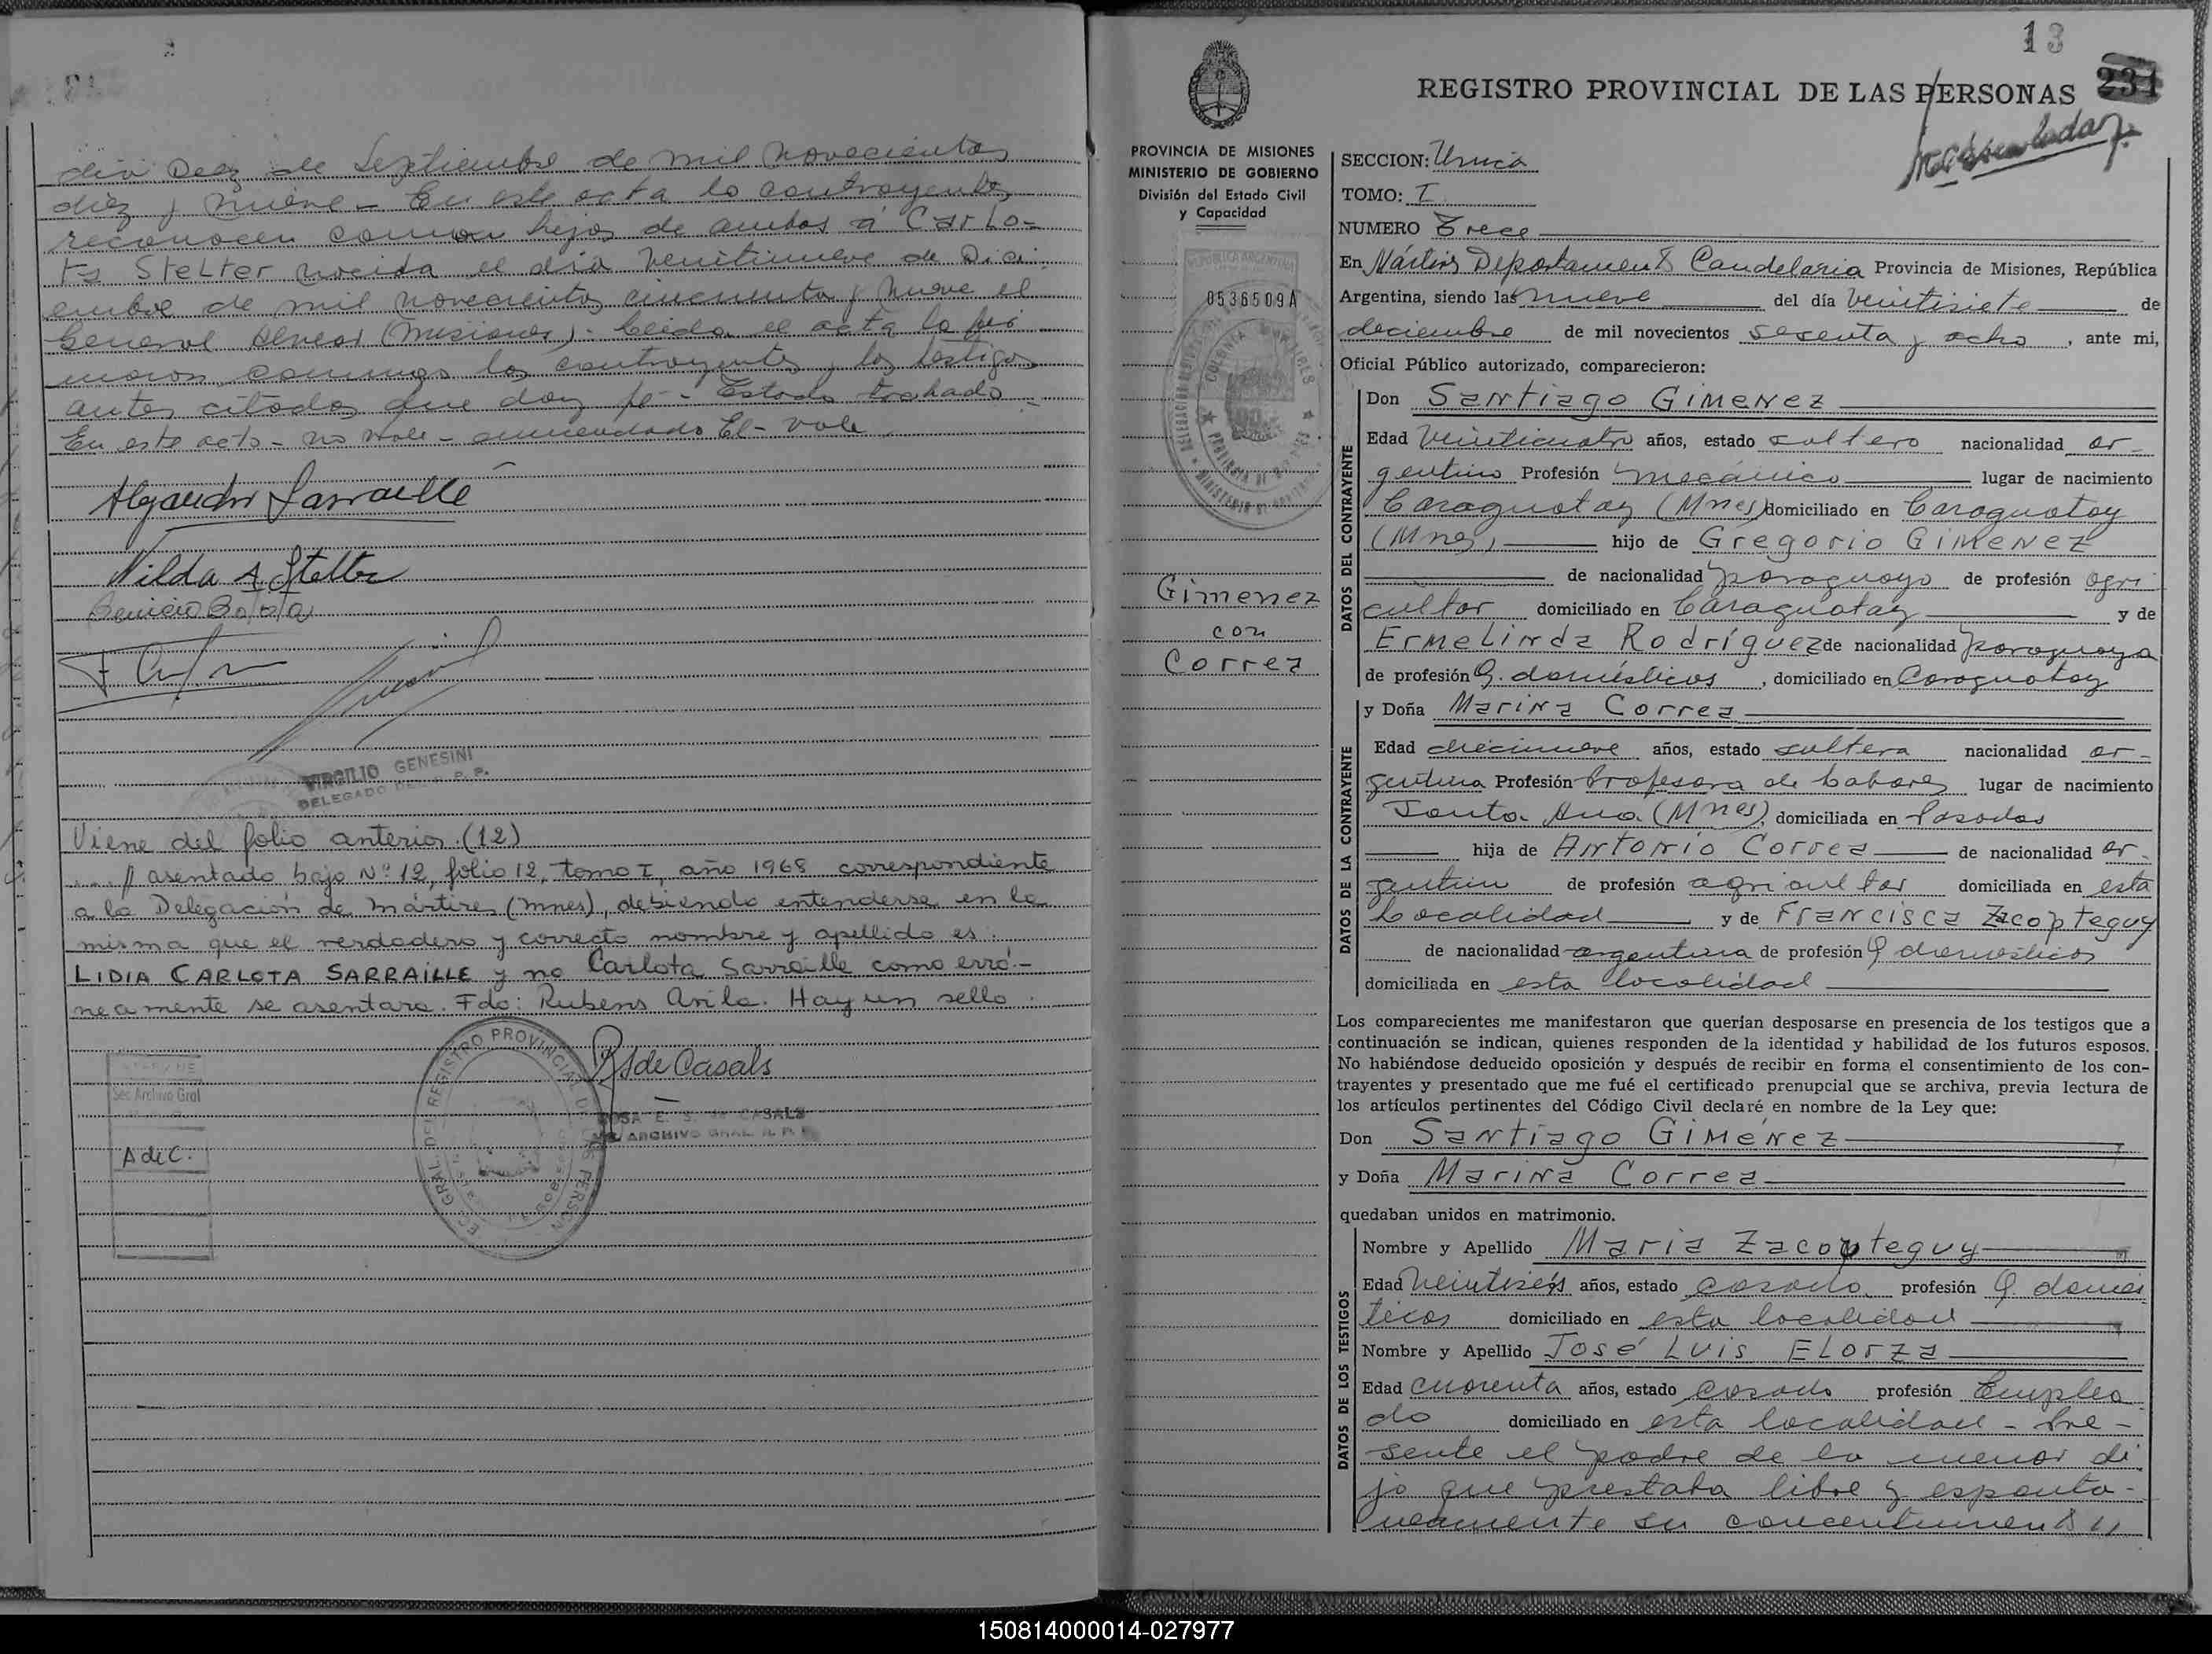 dia Diez de Septiembre de mil novecientos
diez y nueve - En este acta lo contrayentes
reconocen como hijos de ambos a CarLo-
ta Stelter nacida el dia Veintinueve de Dici
embre de mil novecientos cincuenta y nueve el
General Alvear (Misiones). Leida el acta la fir
maron conmigo los contrayentes y los testigos
antes citados que doy fé - Estado tachado -
En este acto - no vale - enmendado El - vale
Alejandro Sarraille
Nilda A. Stelter
VIRGILIO GENESINI
DELEGADO DEL R. P. P.
Viene del folio anterior (12)
....// asentado bajo Nº 12, folio 12, tomo I, año 1968 correspondiente
a la Delegación de Mártires (Mnes), debiendo entenderse en la
misma que el verdadero y correcto nombre y apellido es:
LIDIA CARLOTA SARRAILLE y no Carlota Sarraille como erró-
neamente se asentara. Fdo: Rubens Avila. Hay un sello.
REGISTRO PROVINCIAL DE LAS PERSON
R S de Casals
ROSA E. S. de CASALS
ARCHIVO GRAL R. P. P.
Sec Archivo Gral
A de C.
13
231
REGISTRO PROVINCIAL DE LAS PERSONAS
PROVINCIA DE MISIONES
MINISTERIO DE GOBIERNO
División del Estado Civil
y Capacidad
REPUBLICA ARGENTINA
0536509A
COLONIA MARTIRES
Gimenez
con
Correa
SECCION: Unica
TOMO: I
NUMERO Trece
En Mártires Departamento Candelaria Provincia de Misiones, República
Argentina, siendo las nueve del día veintisiete de
deciembre de mil novecientos sesenta y ocho, ante mi,
Oficial Público autorizado, comparecieron:
DATOS DEL CONTRAYENTE
Don Santiago Gimenez
Edad Veinticuatro años, estado soltero nacionalidad ar-
gentino Profesión mecánico lugar de nacimiento
Caraguatay (Mnes) domiciliado en Caraguatay
(Mnes) hijo de Gregorio Gimenez
de nacionalidad paraguayo de profesión agri
cultor domiciliado en Caraguatay y de
Ermelinda Rodríguez de nacionalidad paraguaya
de profesión Q. domésticos, domiciliado en Caraguatay
DATOS DE LA CONTRAYENTE
y Doña Marina Correa
Edad diecinueve años, estado soltera nacionalidad ar-
gentina Profesión Profesora de Labores lugar de nacimiento
Santa Ana (Mnes), domiciliada en Posadas
hija de Antonio Correa de nacionalidad ar-
gentino de profesión agricultor domiciliada en esta
Localidad y de Francisca Zacopteguy
de nacionalidad argentina de profesión Q domésticos
domiciliada en esta localidad
Los comparecientes me manifestaron que querían desposarse en presencia de los testigos que a
continuación se indican, quienes responden de la identidad y habilidad de los futuros esposos.
No habiéndose deducido oposición y después de recibir en forma el consentimiento de los con-
trayentes y presentado que me fué el certificado prenupcial que se archiva, previa lectura de
los artículos pertinentes del Código Civil declaré en nombre de la Ley que:
Don Santiago Gimenez
y Doña Marina Correa
quedaban unidos en matrimonio.
DATOS DE LOS TESTIGOS
Nombre y Apellido Maria Zacopteguy
Edad Veintiseis años, estado casado profesión Q domés
ticos domiciliado en esta localidad
Nombre y Apellido José Luis Elorza
Edad cuarenta años, estado casado profesión Emplea
do domiciliado en esta localidad - Pre-
sente el padre de la menor di
jo que prestaba libre y esponta-
neamente su concentimento //
150814000014-027977